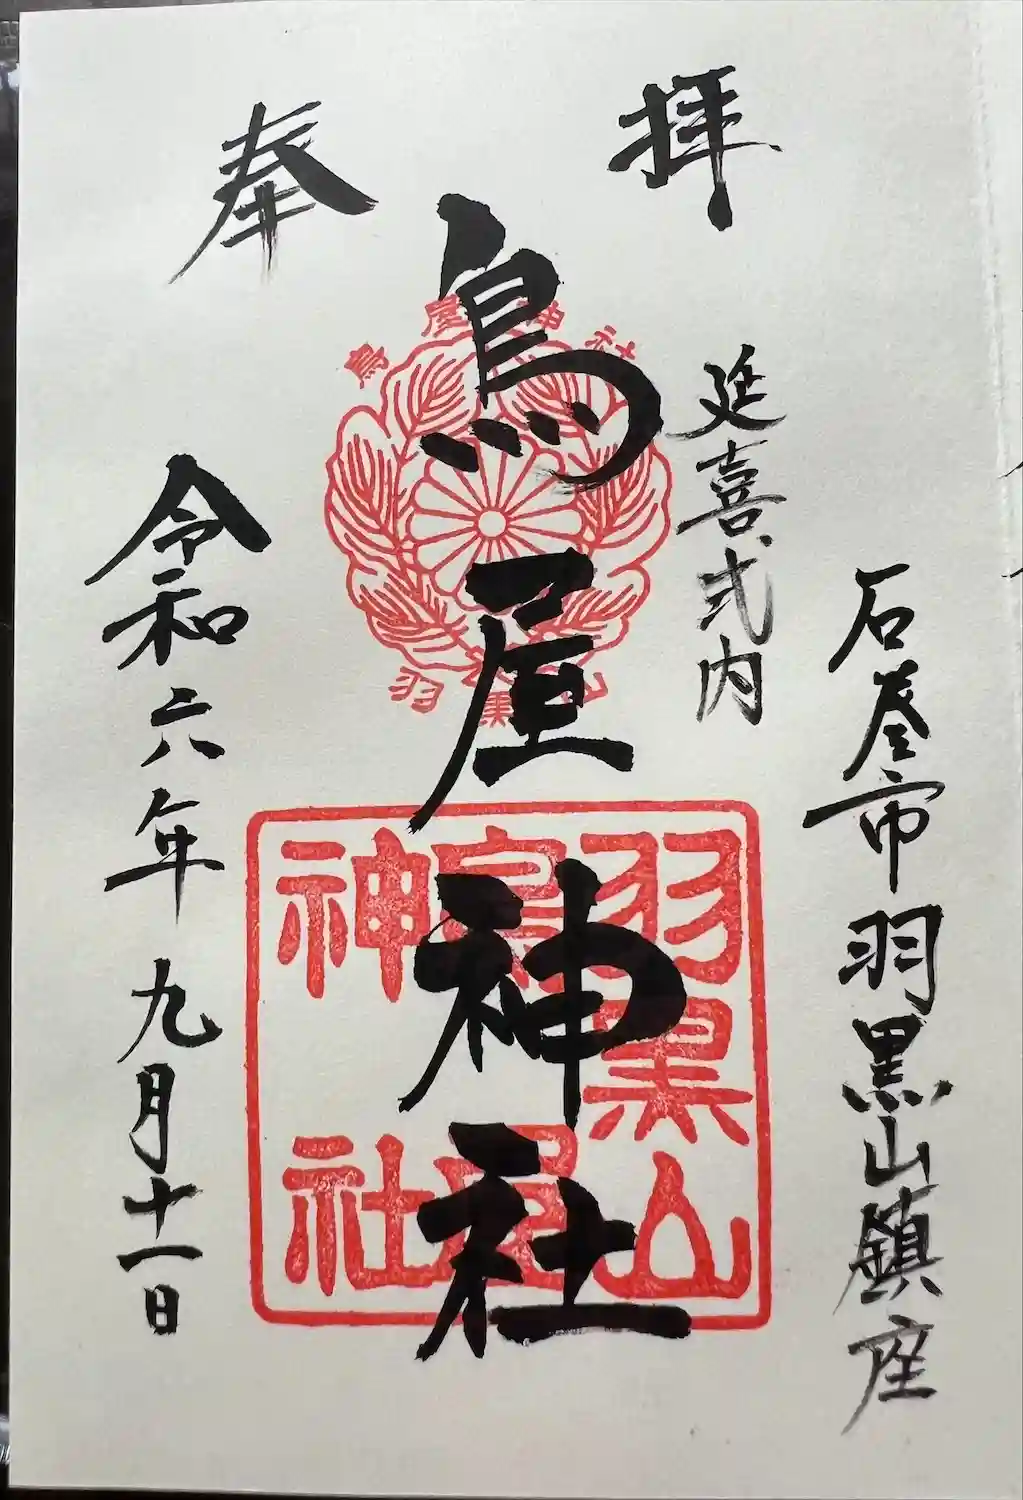 奉拝
石巻市羽黒山鎮座
延喜式内
鳥屋神社
令和六年九月十一日
鳥屋神社
羽黒山
羽黒山
鳥屋
神社